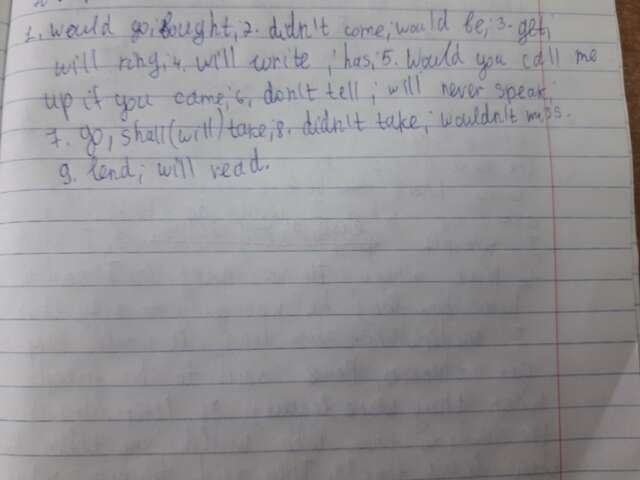 1. would go, bought, 2. didn't come; would be; 3. get;
will ring; 4. will write; has; 5. Would you call me
up if you came; 6. don't tell; will never speak;
7. go, shall (will) take; 8. didn't take; wouldn't miss.
9. lend; will read.